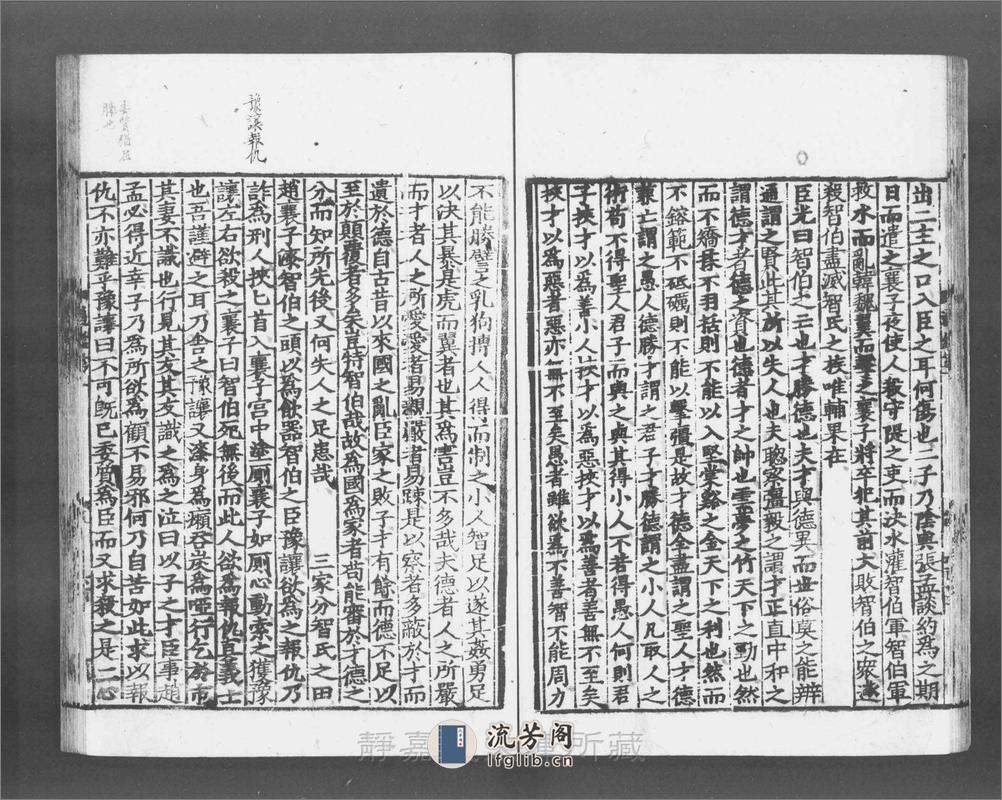 出二主之口入臣之耳何傷也二子乃陰與張孟談約爲之期
日而遣之襄子夜使人殺守隄之吏而決水灌智伯軍智伯軍
救水而亂韓魏翼而擊之襄子將卒犯其前大敗智伯之衆遂
殺智伯盡滅智氏之族唯輔果在
臣光曰智伯之亡也才勝德也夫才與德異而世俗莫之能辨
通謂之賢此其所以失人也夫聰察彊毅之謂才正直中和之
謂德才者德之資也德者才之帥也雲夢之竹天下之勁也然
而不矯揉不羽括則不能以入堅棠谿之金天下之利也然而
不鎔範不砥礪則不能以擊彊是故才德全盡謂之聖人才德
兼亡謂之愚人德勝才謂之君子才勝德謂之小人凡取人之
術苟不得聖人君子而與之與其得小人不若得愚人何則君
子挾才以爲善小人挾才以爲惡挾才以爲善者善無不至矣
挾才以爲惡者惡亦無不至矣愚者雖欲爲不善智不能周力
不能勝譬之乳狗搏人人得而制之小人智足以遂其姦勇足
以決其暴是虎而翼者也其爲害豈不多哉夫德者人之所嚴
而才者人之所愛愛者易親嚴者易踈是以察者多蔽於才而
遺於德自古昔以來國之亂臣家之敗子才有餘而德不足以
至於顛覆者多矣豈特智伯哉故爲國爲家者苟能審於才德之
分而知所先後又何失人之足患哉 三家分智氏之田
趙襄子漆智伯之頭以爲飲器智伯之臣豫讓欲爲之報仇乃
詐爲刑人挾匕首入襄子宮中塗厠襄子如厠心動索之獲豫
讓左右欲殺之襄子曰智伯死無後而此人欲爲報仇眞義士
也吾謹避之耳乃舍之豫讓又漆身爲癩吞炭爲啞行乞於市
其妻不識也行見其友其友識之爲之泣曰以子之才臣事趙
孟必得近幸子乃爲所欲爲顧不易邪何乃自苦如此求以報
仇不亦難乎豫讓曰不可旣已委質爲臣而又求殺之是二心
豫讓報仇
静嘉 所藏
流芳阁
lfglib.cn